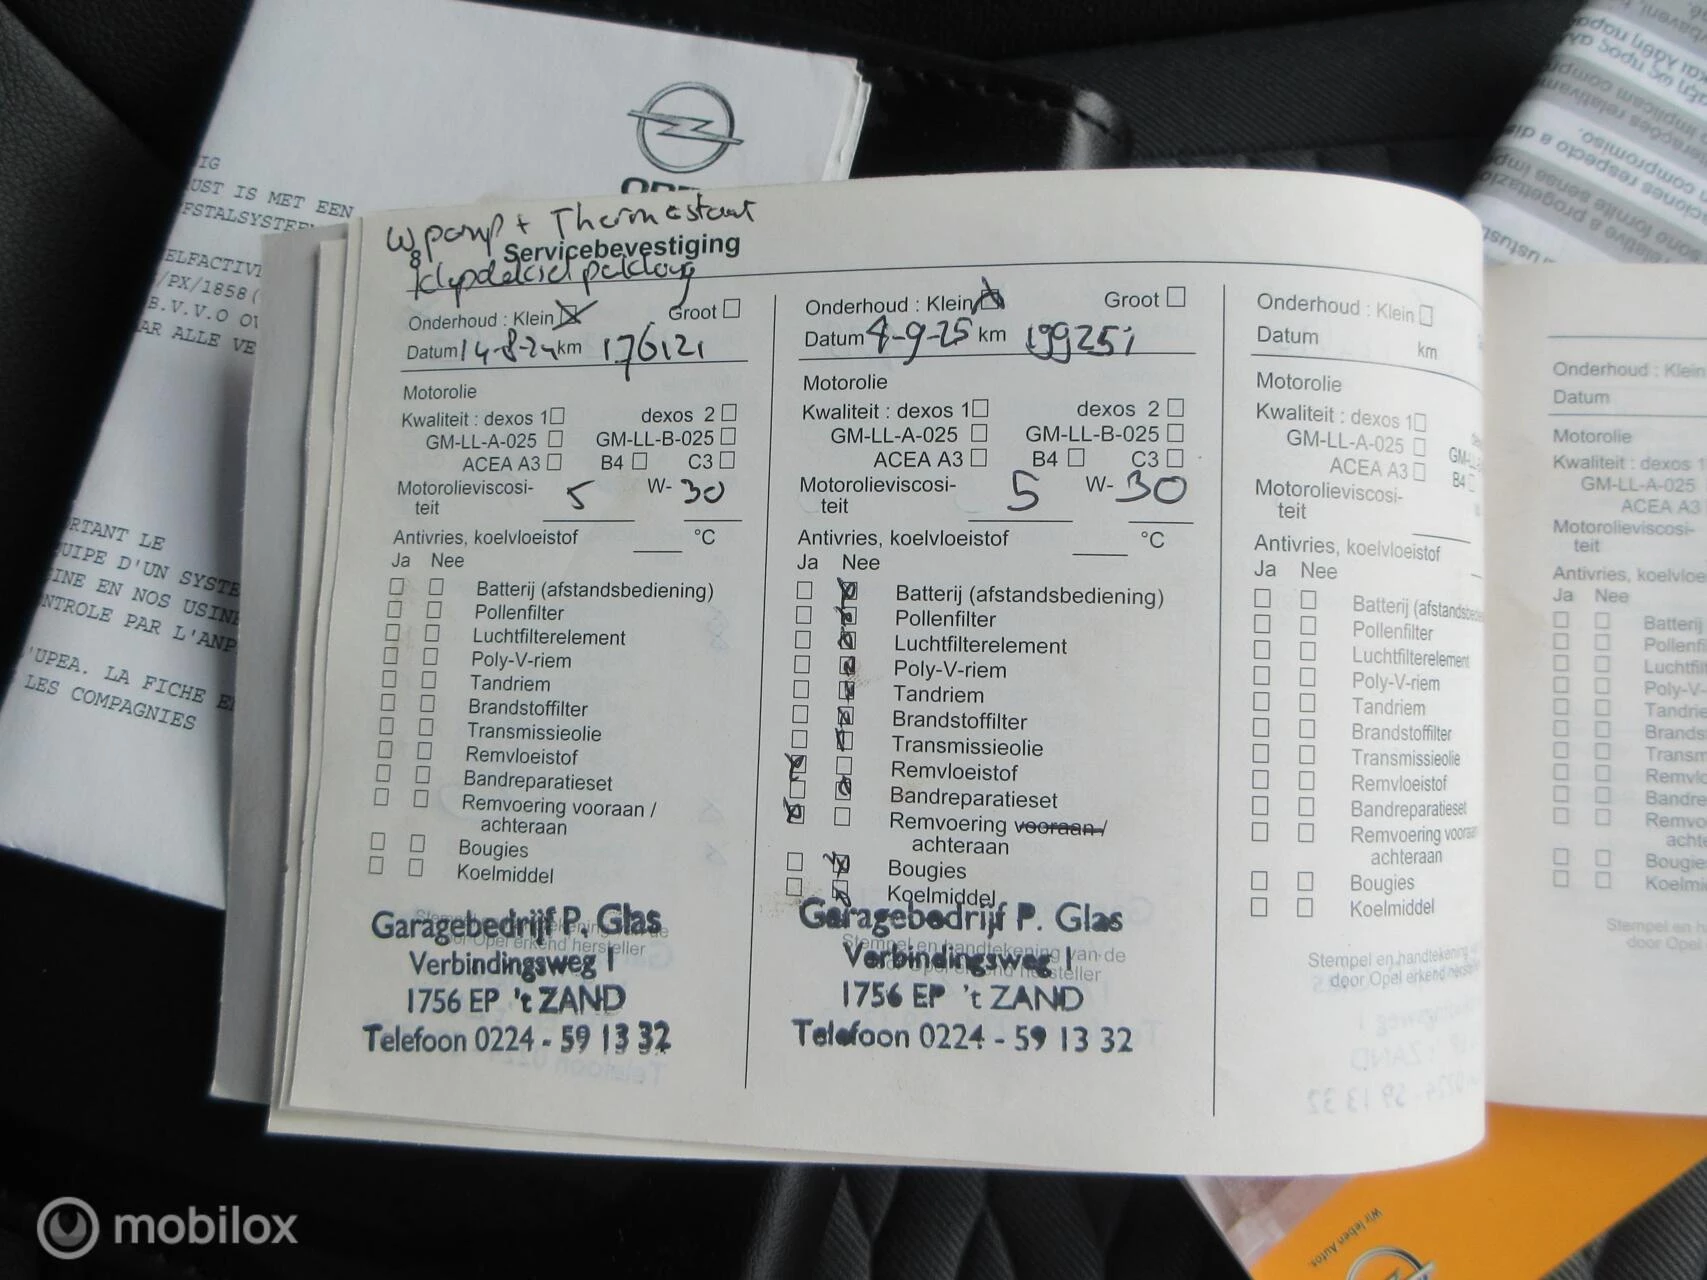 IG
UST IS MET EEN
FSTALSYSTEE
ELFACTIVE
/PX/1858(
B.V.V.O OV
AR ALLE VE
RTANT LE
UIPE D'UN SYSTE
INE EN NOS USINE
NTROLE PAR L'ANP
'UPEA. LA FICHE E
LES COMPAGNIES
Wpomp + Thermostaat
Servicebevestiging
klepdeksel pakking
Onderhoud : Klein Groot
Datum 14-8-24 km 176121
Motorolie
Kwaliteit : dexos 1 dexos 2
GM-LL-A-025 GM-LL-B-025
ACEA A3 B4 C3
Motorolieviscosi-
teit 5 W- 30
Antivries, koelvloeistof °C
Ja Nee
Batterij (afstandsbediening)
Pollenfilter
Luchtfilterelement
Poly-V-riem
Tandriem
Brandstoffilter
Transmissieolie
Remvloeistof
Bandreparatieset
Remvoering vooraan /
achteraan
Bougies
Koelmiddel
Garagebedrijf P. Glas
Verbindingsweg 1
1756 EP 't ZAND
Telefoon 0224 - 59 13 32
Onderhoud : Klein Groot
Datum 4-9-25 km 199251
Motorolie
Kwaliteit : dexos 1 dexos 2
GM-LL-A-025 GM-LL-B-025
ACEA A3 B4 C3
Motorolieviscosi-
teit 5 W- 30
Antivries, koelvloeistof °C
Ja Nee
Batterij (afstandsbediening)
Pollenfilter
Luchtfilterelement
Poly-V-riem
Tandriem
Brandstoffilter
Transmissieolie
Remvloeistof
Bandreparatieset
Remvoering vooraan /
achteraan
Bougies
Koelmiddel
Stempel en handtekening van de
door Opel erkend hersteller
Garagebedrijf P. Glas
Verbindingsweg 1
1756 EP 't ZAND
Telefoon 0224 - 59 13 32
Onderhoud : Klein
Datum km
Motorolie
Kwaliteit : dexos 1
GM-LL-A-025 GM-
ACEA A3 B4
Motorolieviscosi-
teit
Antivries, koelvloeistof
Ja Nee
Batterij (afstandsbedie
Pollenfilter
Luchtfilterelement
Poly-V-riem
Tandriem
Brandstoffilter
Transmissieolie
Remvloeistof
Bandreparatieset
Remvoering vooraan
achteraan
Bougies
Koelmiddel
Stempel en handtekening
door Opel erkend herstel
Onderhoud : Klein
Datum
Motorolie
Kwaliteit : dexos 1
GM-LL-A-025
ACEA A3
Motorolieviscosi-
teit
Antivries, koelvloei
Ja Nee
Batterij
Pollenfi
Luchtfil
Poly-V-
Tandrie
Brands
Transm
Remvlo
Bandre
Remvo
achte
Bougie
Koelmi
Stempel en h
door Opel
Wir leben Autos.
mobilox